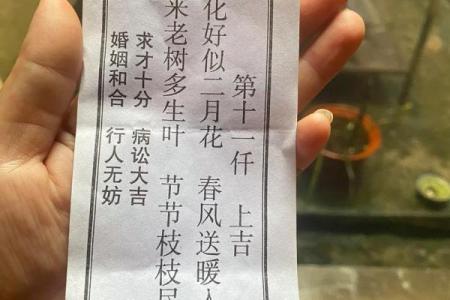 第十一仟 上吉
化好似二月花 春风送暖入
老树多生叶 节节枝枝
求才十分 病讼大吉
婚姻和合 行人无妨